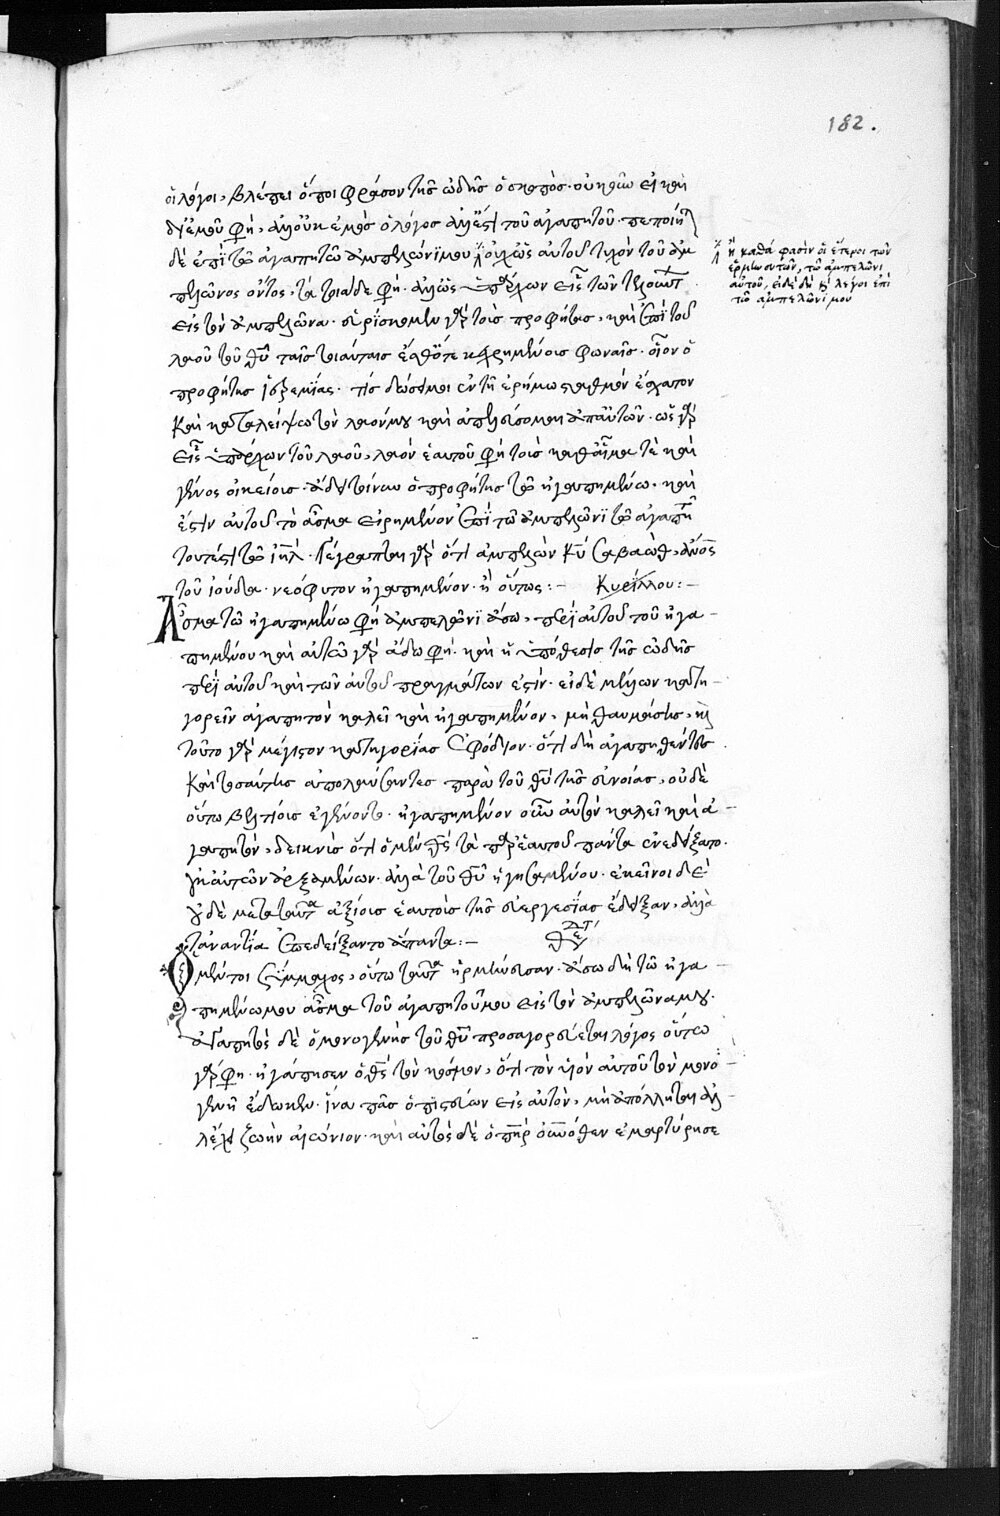 182.
οἱ λόγοι, βλέπει ὅποι φράσον τῆς ὠδῆς ὁ σκοπὸς. οὐκοῦν εἰ καὶ
δι' ἐμοῦ φη, ἀλλ' οὐκ ἐμὸς ὁ λόγος ἀλλ' ἔστι τοῦ ἀγαπητοῦ. πεποίη
δὲ ἐπὶ τῶ ἀγαπητῶ ἀμπελώνί μου οὐχ ὡς αὐτοῦ τοῦ ἀμ
πελῶνος ὄντος, τὰ τοιάδε φη. ἀλλ' ὡς
εἰς τὸν ἀμπελῶνα. εὑρίσκομεν γὰρ τοὺς προφήτας, καὶ ἐπὶ τοῦ
λαοῦ τοῦ θυ ταῖς τοιαύταις ἔσθ' ὅτε κεχρημένους φωναῖς. οἷον ὁ
προφήτης ἱερεμίας. τίς δώσει μοι ἐν τῆ ἐρήμω σταθμὸν ἔσχατον
καὶ καταλείψω τὸν λαόν μου καὶ ἀπελεύσομαι ἀπ' αὐτῶν. ὡς γὰρ
εἷς ὑπάρχων τοῦ λαοῦ, λαὸν ἑαυτοῦ φη τοὺς καθ' αἷμα τὲ καὶ
γένος οἰκείους. ἄδει τοίνυν ὁ προφήτης τῶ ἠγαπημένω. καὶ
ἔστιν αὐτοῦ τὸ ἆσμα εἰρημένον ἐπὶ τῶ ἀμπελῶνι τῶ ἀγαπη
τουτέστι τῶ ιηλ. γέγραπται γὰρ ὅτι ἀμπελὼν κυ σαβαὼθ, ανος
τοῦ ἰούδα. νεόφυτον ἠγαπημένον. ἢ οὕτως:– Κυρίλλου:–
Ἆσμα τῶ ἠγαπημένω φη ἀμπελῶνι ἄσω, περὶ αὐτοῦ τοῦ ἠγα–
πημένου καὶ αὐτῶ γὰρ ἄδω φη. καὶ ἡ ὑπόθεσις τῆς ὠδῆς
περὶ αὐτοῦ καὶ τῶν αὐτοῦ πραγμάτων ἐστίν. εἰ δὲ μέλλων κατη–
γορεῖν ἀγαπητὸν καλεῖ καὶ ἠγαπημένον, μὴ θαυμάσης, κỳ
τοῦτο γὰρ μέγιστον κατηγορίας ἐφόδιον. ὅτι δὴ ἀγαπηθέντες
καὶ τοσαύτης ἀπολαύσαντες παρὰ τοῦ θυ τῆς εὐνοίας, οὐδὲ
οὕτω βελτίους ἐγένοντο. ἠγαπημένον οὖν αὐτὸν καλεῖ καὶ ἀ–
γαπητὸν, δεικνὺς ὅτι ὁ μὲν θς τὰ παρ' ἑαυτοῦ πάντα ἐνεδείξατο.
οὐκ αὐτῶν ἀρξαμένων. ἀλλὰ τοῦ θυ ἡγησαμένου. ἐκεῖνοι δὲ
οὐδὲ μετὰ ταῦτα ἀξίους ἑαυτοὺς τῆς εὐεργεσίας ἔδειξαν, ἀλλὰ
τἀναντία ἐπεδείξαντο ἅπαντα:–
Ὁ μέντοι σύμμαχος, οὕτω ταῦτα ἡρμήνευσεν. ἄσω δὴ τῶ ἠγα–
πημένω μου ἆσμα τοῦ ἀγαπητοῦ μου εἰς τὸν ἀμπελῶνα μου.
ἀγαπητὸς δὲ ὁ μονογενὴς τοῦ θυ προσαγορεύεται λόγος οὕτω
γὰρ φη. ἠγάπησεν ὁ θς τὸν κόσμον, ὅτι τὸν υἱὸν αὐτοῦ τὸν μονο–
γενῆ ἔδωκεν. ἵνα πᾶς ὁ πιστεύων εἰς αὐτὸν, μὴ ἀπόλληται ἀλ–
λ' ἔχη ζωὴν αἰώνιον. καὶ αὐτὸς δὲ ὁ πηρ ἄνωθεν ἐμαρτύρησε
ἢ καθά φασὶν οἱ ἕτεροι τῶν
ἑρμηνευτῶν, τῶ ἀμπελῶνι
αὐτοῦ, εἰ δὲ δὴ κỳ λέγοι ἐπὶ
τῶ ἀμπελῶνί μου